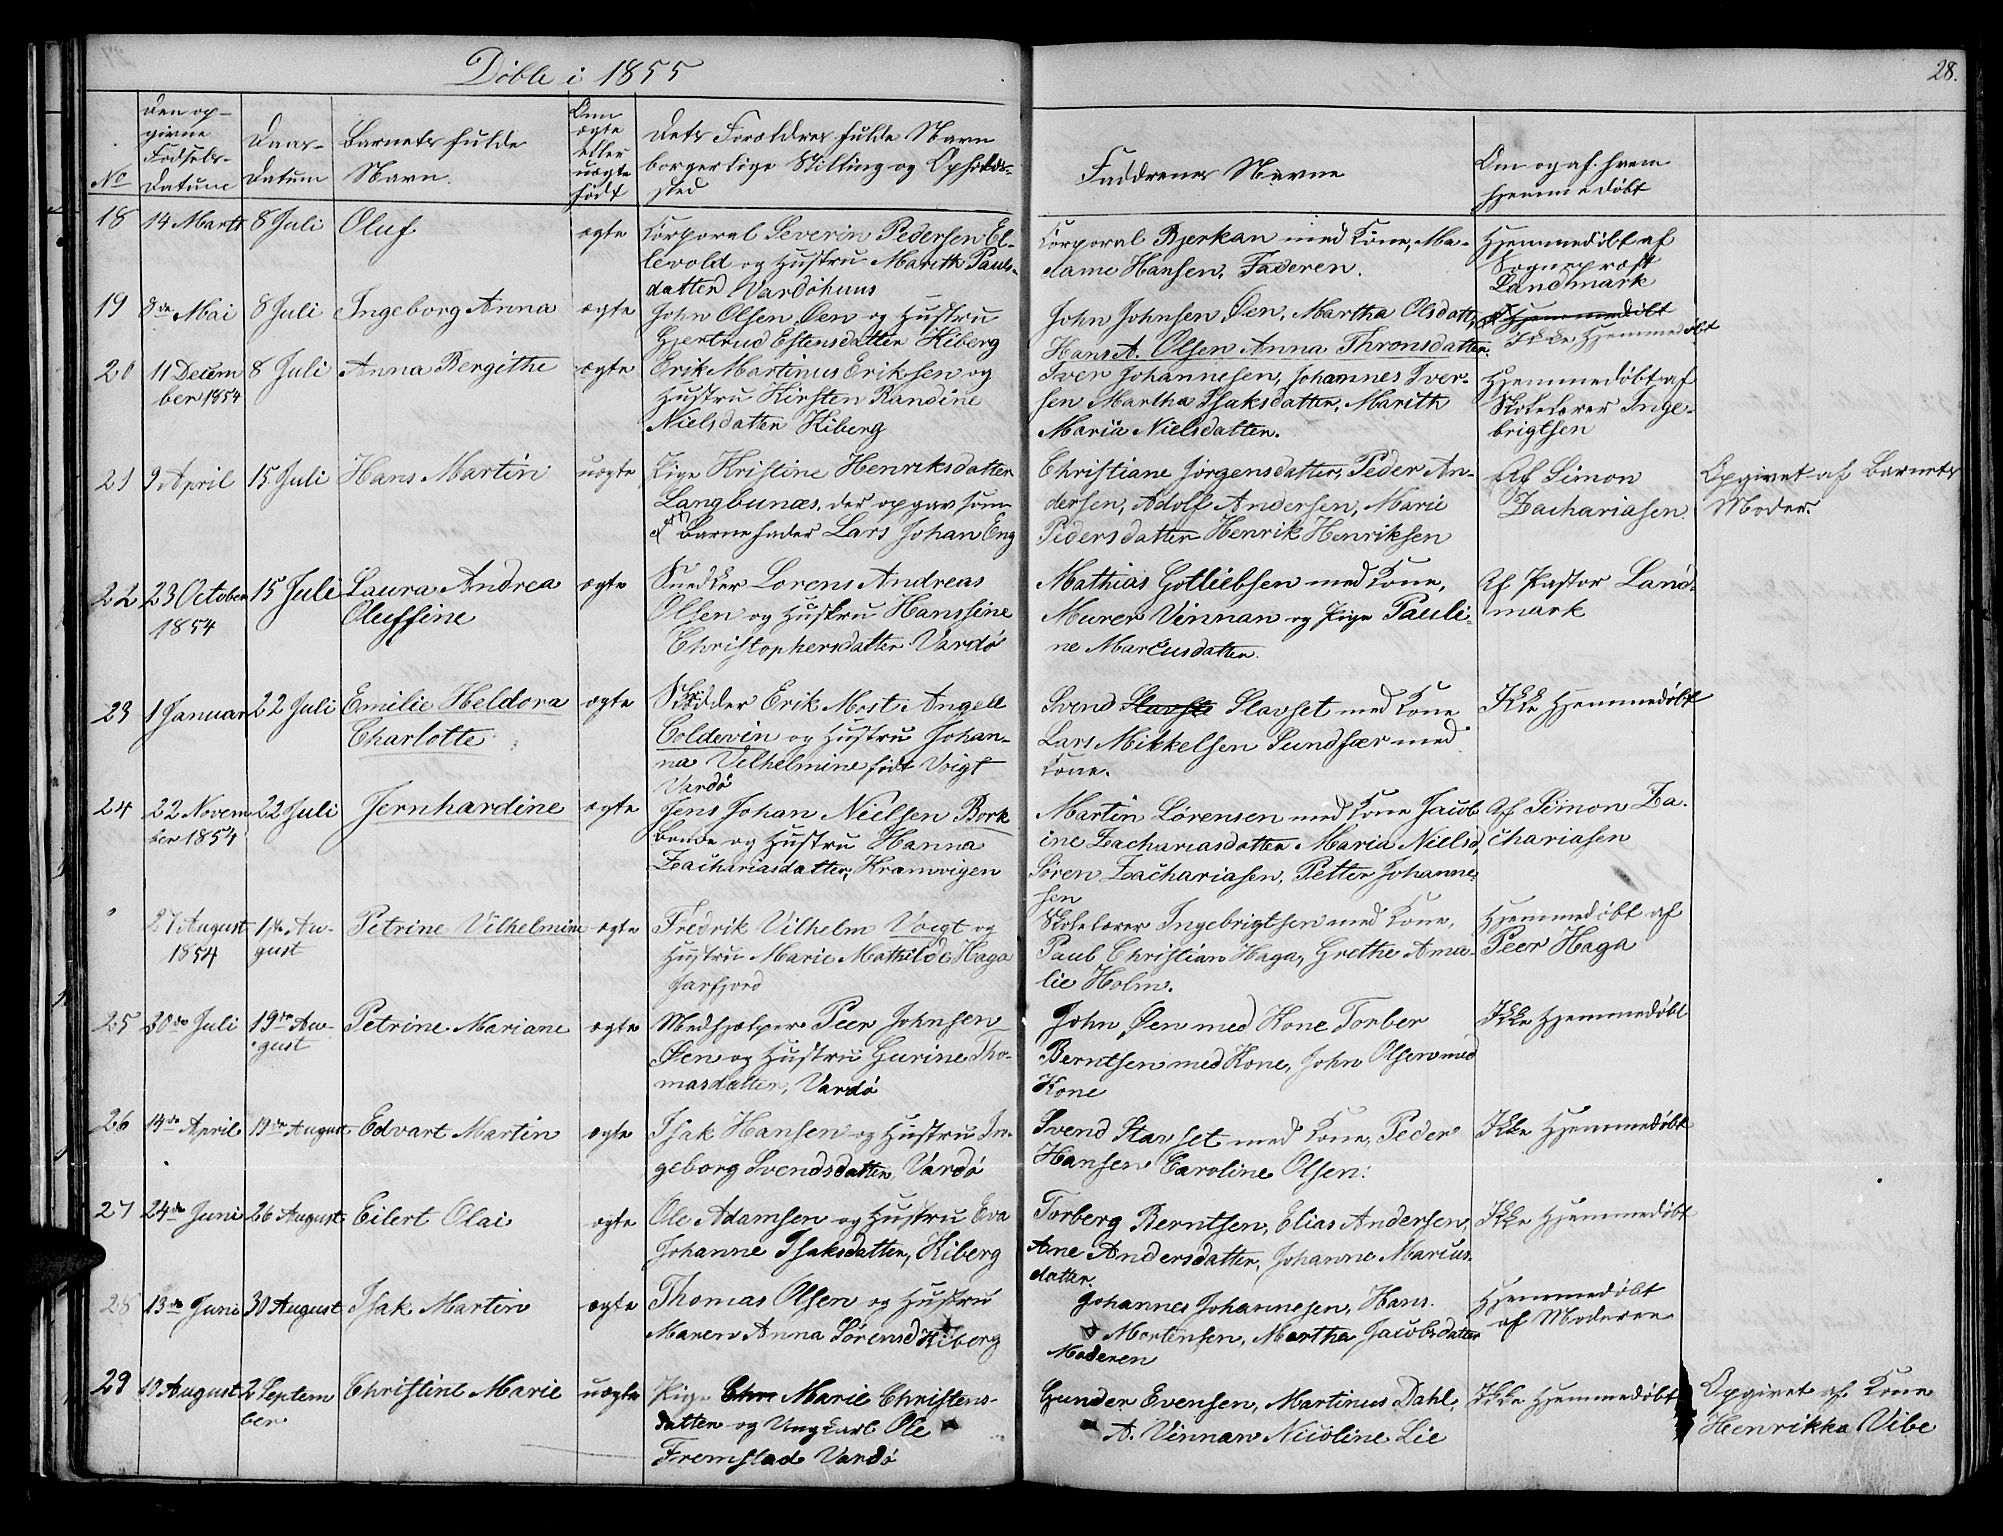 Døbte i 1855
28.
No
Den op-
givne
Fødsels-
Datum
Daas-
Datum
Barnets fulde
Navn.
Om
ægte
eller
uægte
født
Dets Forældres fulde Navn
borgerlige Stilling og Opholds-
sted
Faddrenes Navne
Om og af hvem
hjemmedøbt
18 14 Marts 8 Juli Oluf ægte
Corporal Severin Pedersen El-
levold og Hustru Marith Pauls-
datter Vardøhuus
Corporal Bjerkan med Kone, Ma-
dame Hansen, Faderen.
Hjemmedøbt af
Sognepræst
Landmark
19 8de Mai 8 Juli Ingeborg Anna ægte
John Olsen Øen og Hustru
Gjertrud Estensdatter Kiberg
John Johnsen Øen, Martha Olsdatt,
Hans A. Olsen Anna Thronsdatter.
Hjemmedøbt
Ikke Hjemmedøbt
20 11 Decem
ber 1854 8 Juli Anna Bergithe ægte
Erik Martinus Eriksen og
Hustru Kirsten Randine
Nielsdatter Kiberg
Iver Johannesen, Johannes Iver-
sen Martha Isaksdatter, Marith
Maria Nielsdatter.
Hjemmedøbt af
Skolelærer Inge-
brigtsen
21 9 April 15 Juli Hans Martin uægte
Pige Kristine Henriksdatter
Langbunæs, der opgav som
Barnefader Lars Johan Eng
Christiane Jørgensdatter, Peder An-
dersen, Adolf Andersen, Marie
Pedersdatter Henrik Henriksen
Af Simon
Zachariasen.
Opgivet af Barnets
Moder.
22 23 October
1854 15 Juli Laura Andrea
Oluffine ægte
Snedker Lorens Andreas
Olsen og Hustru Hanssine
Christophersdatter Vardø
Mathias Gotliebsen med Kone,
Murer Vinnan og Pige Pauli-
ne Marcusdatter.
Af Pastor Land-
mark
23 1 Januar 22 Juli Emilie Heldora
Charlotte ægte
Skrædder Erik Most Angell
Coldevin og Hustru Johan-
na Velhelmine født Voigt
Vardø
Svend Slavset med Kone
Lars Mikkelsen Sundfær med
Kone.
Ikke Hjemmedøbt
24 22 Novem
ber 1854 22 Juli Jernhardine ægte
Jens Johan Nielsen Bork
Bonde og Hustru Hanna
Zachariasdatter, Kramvigen
Martin Lørensen med Kone Jacob
ine Zachariasdatter Maria Nielsd,
Søren Zachariasen, Petter Johanne-
sen
Af Simon Za-
chariasen
27 August
1854 Au-
gust Petrine Vilhelmine ægte
Fredrik Vilhelm Voigt og
Hustru Marie Mathilde Haga
Jarfjord
Skolelærer Ingebrigtsen med Kone,
Paul Christian Haga, Grethe Ama-
lie Holm.
Hjemmedøbt af
Peer Haga
25 30de Juli 19de Au-
gust Petrine Mariane ægte
Medhjelper Peer Johnsen
Øen og Hustru Gurine Tho-
masdatter, Vardø
John Øen med Kone Torber
Berntsen med Kone, John Olsen med
Kone
Ikke Hjemmedøbt
26 14de April 19de August Edvart Martin ægte
Isak Hansen og Hustru In-
geborg Svendsdatter, Vardø
Svend Slavset med Kone, Peder
Hansen Caroline Olsen.
Ikke Hjemmedøbt
27 24de Juni 26 August Eilert Olai ægte
Ole Adamsen og Hustru Eva
Johanne Isaksdatter, Kiberg
Torberg Berntsen, Elias Andersen,
Ane Andersdatter, Johanne Marcus-
datter.
Ikke Hjemmedøbt
28 13de Juni 30 August Isak Martin ægte
Thomas Olsen og Hustru
Maren Anna Sørensd Kiberg
Johannes Johannesen, Hans
Mortensen, Martha Jacobsdatter
Moderen
Hjemmedøbt
af Moderen
29 10 August 2 Septem
ber Christine Marie uægte
Pige Chr Marie Christens-
datter og Ungkarl Ole
Fremstad Vardø
Gunder Evensen, Martinus Dahl,
A. Vinnan Nicoline Lie
Ikke Hjemmedøbt
Opgivet af Kone
Henrikka Vibe